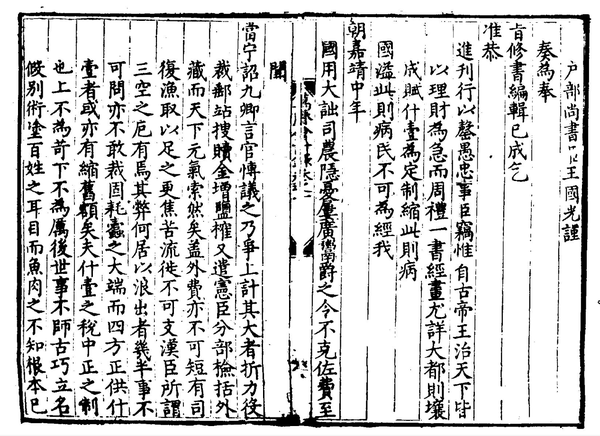 户部尚書臣王國光謹
奏為奉
旨修書編輯已成乞
准恭
進刊行以罄愚忠事臣竊惟自古帝王治天下皆
以理財為急而周禮一書經畫尤詳大都則壤
成賦什壹為定制縮此則病
國溢此則病民不可為經我
朝嘉靖中年
國用大詘司農隱憂屢廣鬻爵之令不克佐費至
聞
當宁詔九卿言官慱議之乃爭上計其大者折力役
裁郵站搜贖金增鹽榷又遣憲臣分部檢括外
藏而天下元氣索然矣盖外費亦不可短有司
復漁取以足之更焦苦流徙不可支漢臣所謂
三空之厄有焉其弊何居以浪出者幾半事不
可問亦不敢裁固耗蠹之大端而四方正供什
壹者或亦有縮舊額矣夫什壹之稅中正之制
也上不為苛下不為厲後世事不師古巧立名
假別術塗百姓之耳目而魚肉之不知根本已